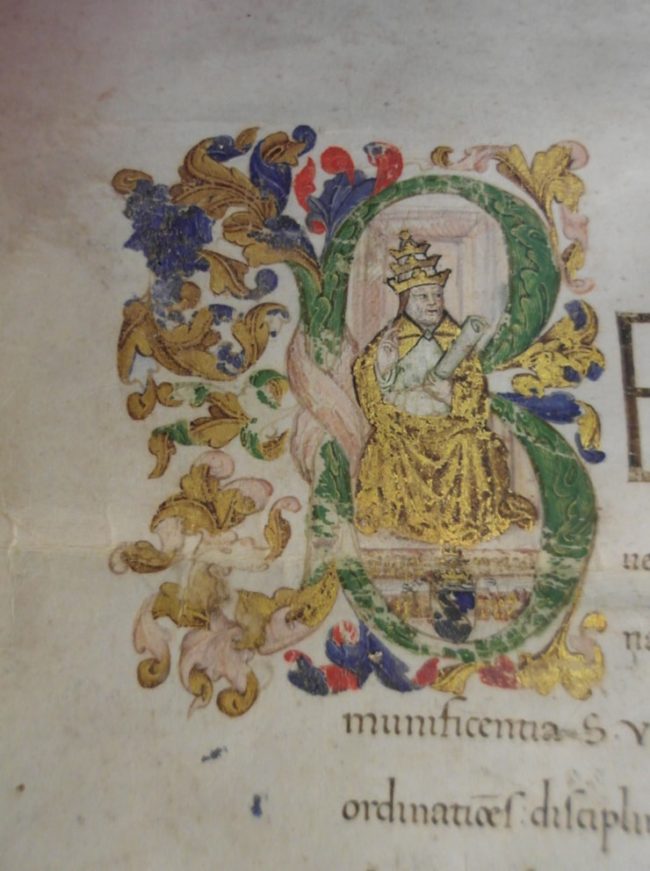 B
ne
na
munificentia S. V
ordinatiōēſ diſciplin